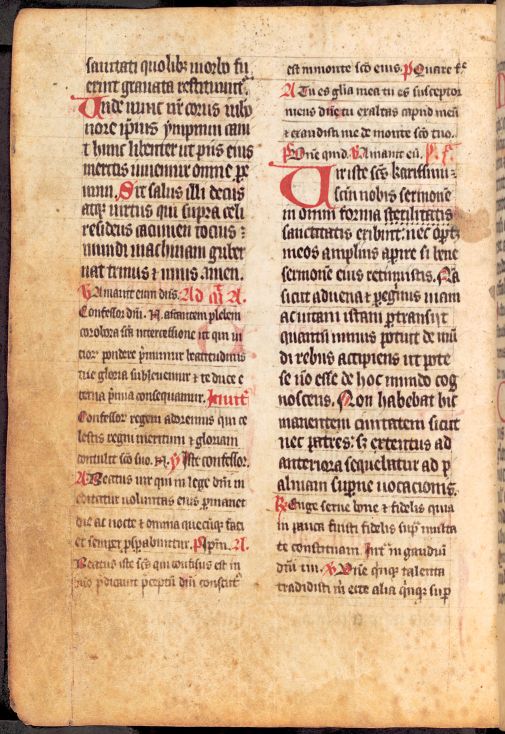 sanitati quolibꝫ morbo fu
erint grauata restituunt᷑.
Unde nunc nr̄ corus in ho
nore ip̄ius ẏmpnum cani
t hunc libenter ut piis eius
meritis iuuemur omne ꝑe
uum. Sit salus illi decus
atqꝫ uirtus qui supra celi
residens cacumen tocius
mundi machinam guber
nat trinus ⁊ unus. amen.
V̄ Amauit eum dn̄s. Ad A.
Confessor dn̄i. N. astantem plebem
corobora sc̄a intercessione ut qui ui
ciorꝫ pondere p̄mimur beatitudinis
tue gloria subleuemur ⁊ te duce e
terna p̄mia consequamur. Inuit᷑
Confessorꝫ regem adoremus qui ce
lestis regni meritum ⁊ gloriam
contulit sc̄o suo. N. Ẏ Iste confessor.
A. Beatus uir qui in lege dn̄i m
editatur uoluntas eius ꝑmanet
die ac nocte ⁊ omnia quecūqꝫ faci
et semper ꝓsꝑabuntur. Ps. A.
Beatus iste sc̄s qui confisus est in
dn̄o p̄dicauit p̄ceptū dn̄i constit᷑
est in monte sc̄o eius. P̄ Quare f᷑
A Tu es gl̄ia mea tu es susceptor
meus dn̄e tu exaltas capud meū
⁊ exaudisti me de monte sc̄o tuo.
Ps. Dn̄e quid. V̄ Amauit eū.
Vir iste sc̄s karissimi
scin nobis sermone
in omni forma sterilitatis
sanctitatis exibint: nec oportꝫ
meos amplius aꝑire si bene
sermonē eius retinuistis. Na
sicut aduena ⁊ ꝑegrinus uiam
ac uitam istam ꝑtransiit
quantū minus potuit de mū
di rebus accipiens ut pote
se nō esse de hoc mundo cog
noscens. Non habebat hic
manentem ciuitatem sicut
nec patres: sꝫ extentus ad
anteriora sequebatur ad p
almam suꝑne uocacionis.
R̄ Euge serue bone ⁊ fidelis quia
in pauca fuisti fidelis suꝑ multa
te constituam. Intᷓ in gaudiū
dn̄i tui. V̄ Dn̄e qi̇nqꝫ talenta
tradidisti m̄ ecce alia qi̇nqꝫ suꝑ